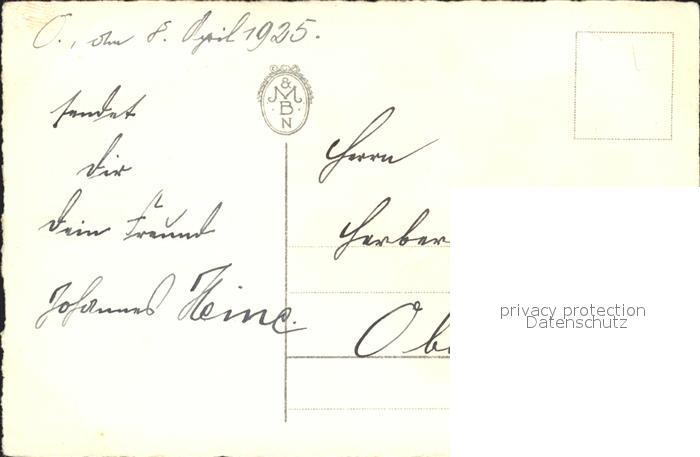 O., am 8. April 1925.
sendet
Dir
Dein Freund
Johannes Heine.
&
M
B
N
Herrn
Herber
Ob
privacy protection
Datenschutz